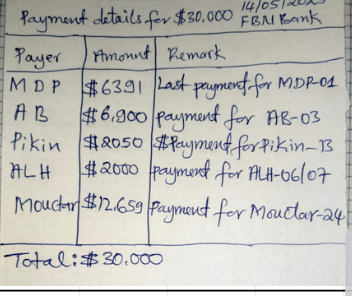 Payment details for $30.000 14/05/2025
FBM Bank
Payer Amount Remark
MDP $6391 Last payment for MDP-01
AB $6,900 payment for AB-03
Pikin $2050 $Payment for Pikin-13
ALH $2000 payment for ALH-06/07
Mouctar $12,659 Payment for Mouctar-24
Total: $30.000